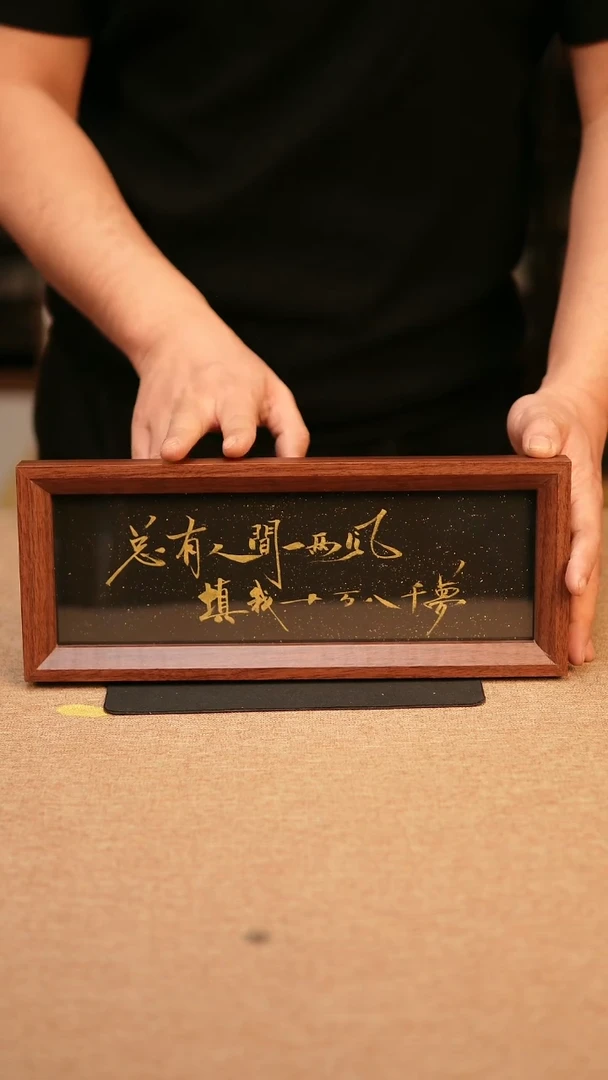 总有人間一两风
填我十万八千夢